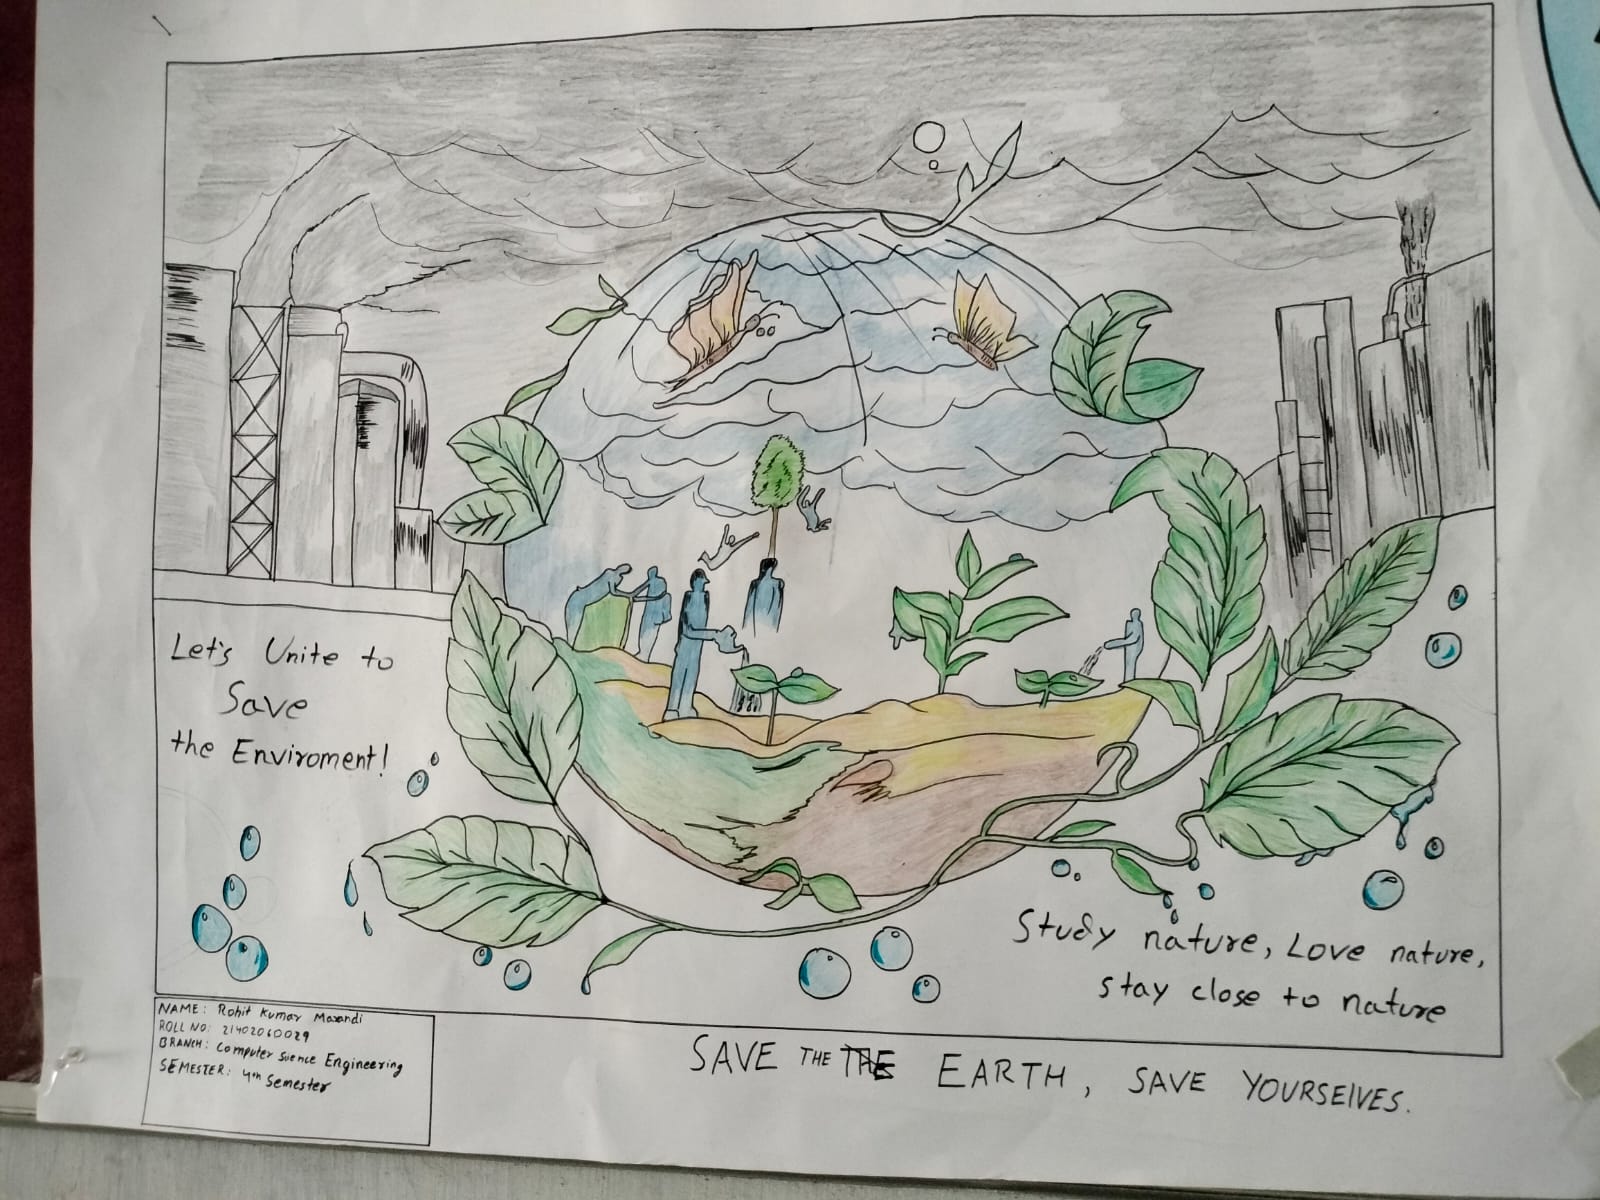 Let's Unite to
Save
the Enviroment!
Study nature, Love nature,
stay close to nature
NAME: Rohit Kumar Marandi
ROLL NO: 21402060029
BRANCH: Computer Suence Engineering
SEMESTER: 4th Semester
SAVE THE EARTH, SAVE YOURSELVES.